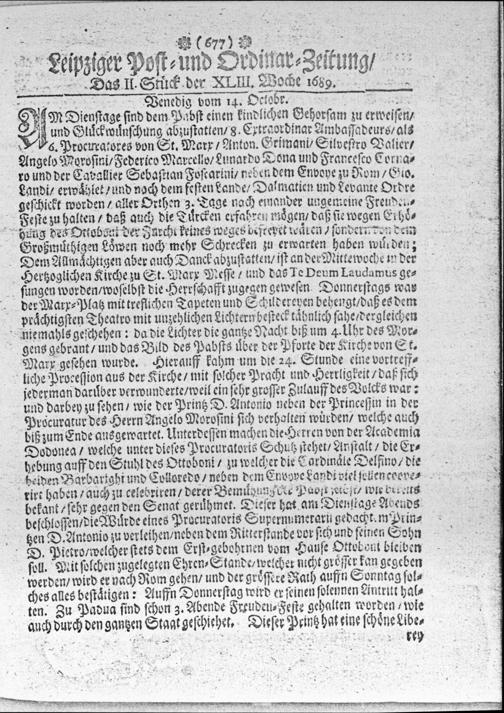 (677)
Leipziger Post- und Ordinar-Zeitung/
Das II. Stück der XLIII. Woche 1689.
Venedig vom 14. Octobr.
AM Dienstage sind dem Pabst einen kindlichen Gehorsam zu erweisen/
und Glückwünschung abzustatten/ 8. Extraordinar Ambassadeurs/ als
6. Procuratores von St. Marx/ Anton. Grimani/ Silvestro Valier/
Angelo Morosini/ Federico Marcello/ Lunardo Dona und Francesco Corna-
ro und der Cavallier Sebastian Foscarini/ neben dem Envoye zu Rom/ Gio.
Landi/ erwählet/ und nach dem festen Lande/ Dalmatien und Levante Ordre
geschickt worden/ aller Orthen 3. Tage nach einander ungemeine Freuden-
Feste zu halten/ daß auch die Türcken erfahren mögen/ daß sie wegen Erhö-
hung des Ottoboni der Furcht keines weges befreyet wären/ sondern von dem
Großmüthigen Löwen noch mehr Schrecken zu erwarten haben würden;
Dem Allmächtigen aber auch Danck abzustatten/ ist an der Mittewoche in der
Hertzoglichen Kirche zu St. Marx Messe/ und das Te Deum Laudamus ge-
sungen worden/ woselbst die Herrschafft zugegen gewesen. Donnerstags war
der Marx-Platz mit treflichen Tapeten und Schildereyen behengt/ daß es dem
prächtigsten Theatro mit unzehlichen Lichtern besteck tähnlich sahe/ dergleichen
niemahls geschehen: da die Lichter die gantze Nacht biß um 4. Uhr des Mor-
gens gebrant/ und das Bild des Pabsts über der Pforte der Kirche von St.
Marx gesehen wurde. Hierauff kahm um die 24. Stunde eine vortreff-
liche Procession aus der Kirche/ mit solcher Pracht und Herrligkeit/ daß sich
jederman darüber verwunderte/ weil ein sehr grosser Zulauff des Volcks war:
und darbey zu sehen/ wie der Printz D. Antonio neben der Princessin in der
Procuratur des Herrn Angelo Morosini sich verhalten würden/ welche auch
biß zum Ende ausgewartet. Unterdessen machen die Herren von der Academia
Dodonea/ welche unter dieses Procuratoris Schutz stehet/ Anstalt/ die Er-
hebung auff den Stuhl des Ottoboni/ zu welcher die Cardinäle Delfino/ die
beiden Barbarighi und Colloredo/ neben dem Envoye Landi viel sollen coope-
rirt haben/ auch zu celebriren/ derer Bemühung der Pabst selbst/ wie bereits
bekant/ sehr gegen den Senat gerühmet. Dieser hat am Dienstage Abends
beschlossen/ die Würde eines Procuratoris Supernumerarii gedachtem Prin-
tzen D. Antonio zu verleihen/ neben dem Ritterstande vor sich und seinen Sohn
D. Pietro/ welcher stets dem Erst-gebohrnen vom Hause Ottoboni bleiben
soll. Mit solchen zugelegten Ehren-Stande/ welcher nicht grösser kan gegeben
werden/ wird er nach Rom gehen/ und der grössere Rath auffn Sonntag sol-
ches alles bestätigen: Auffn Donnerstag wird er seinen solennen Antritt hal-
ten. Zu Padua sind schon 3. Abende Freuden-Feste gehalten worden/ wie
auch durch den gantzen Staat geschiehet. Dieser Printz hat eine schöne Libe-
rey